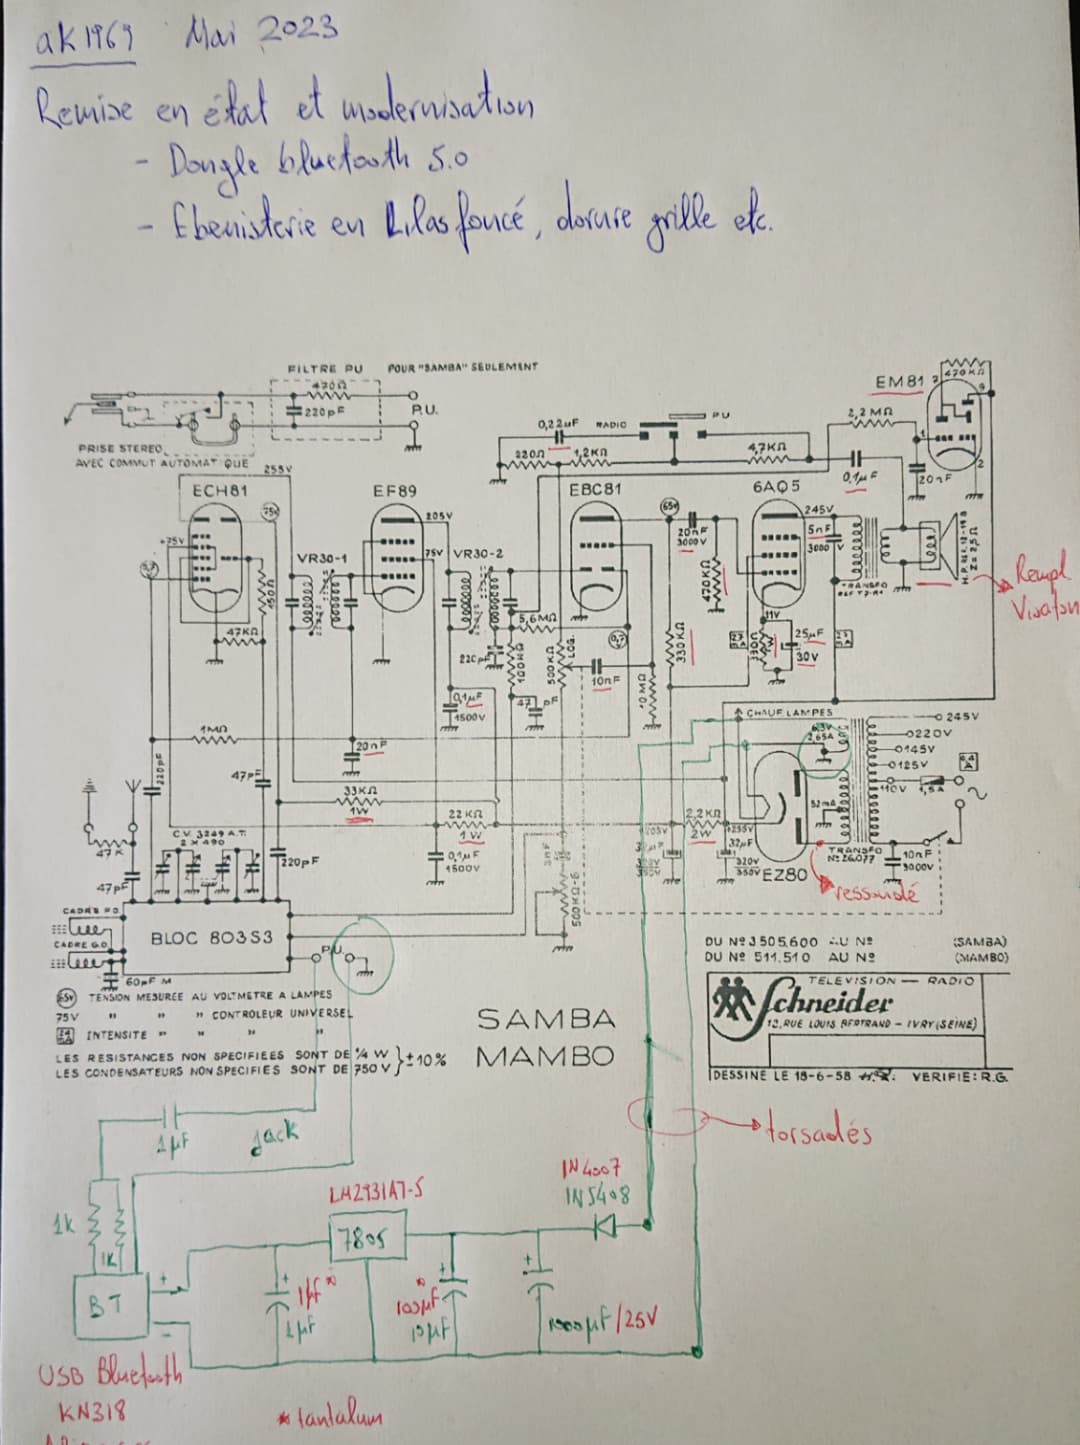 ak1969 Mai 2023
Remise en état et modernisation
- Dongle bluetooth 5.0
- Ebenisterie en Lilas foncé, dorure grille etc.
FILTRE PU POUR "SAMBA" SEULEMENT
470Ω
220pF
P.U.
PRISE STEREO
AVEC COMMUT AUTOMATIQUE
0,22µF RADIO PU
220Ω 1,2KΩ 4,7KΩ
2,2MΩ
EM81
470KΩ
0,1µF
20nF
255V
ECH81 EF89 EBC81 6AQ5
75V
205V
65V
245V
+75V
75V
VR30-1 VR30-2
20nF
3000V
5nF
3000V
470KΩ
TRANSFO
Z = 2,5Ω
Rempl
Visaton
150Ω
47KΩ
5,6MΩ
220pF
100KΩ
500KΩ LOG.
10nF
10MΩ
330KΩ
11V
25µF
30V
0,1µF
1500V
47 pF
1MΩ
20nF
220pF
47pF
33KΩ
1W
22KΩ
1W
2,2KΩ
2W
CHAUF LAMPES
6,3V
2,65A
245V
220V
145V
125V
110V 1,5A
52mA
+255V
32µF
320V
350V
EZ80
TRANSFO
Nº 26.077
10nF
3000V
ressoudé
47K
47pF
C.V. 3249 A.T.
2 X 490
220pF
0,1µF
1500V
CADRE P.O.
CADRE G.O
BLOC 803S3
P.U.
60pF M
65V TENSION MESUREE AU VOLTMETRE A LAMPES
75V " " " CONTROLEUR UNIVERSEL
INTENSITE " " " "
LES RESISTANCES NON SPECIFIEES SONT DE ¼ W } ±10%
LES CONDENSATEURS NON SPECIFIES SONT DE 750 V
SAMBA
MAMBO
DU Nº 3505.600 AU Nº (SAMBA)
DU Nº 511.510 AU Nº (MAMBO)
TELEVISION — RADIO
Schneider
12, RUE LOUIS BERTRAND — IVRY (SEINE)
DESSINE LE 18-6-58 VERIFIE: R.G.
1µF
jack
torsadés
LM2931AT-5
7805
1N4007
1N5408
1k
1K
BT
+
-
1µF*
1µF
*
100µF
10µF
1000µF/25V
USB Bluetooth
KN318
* tantalum